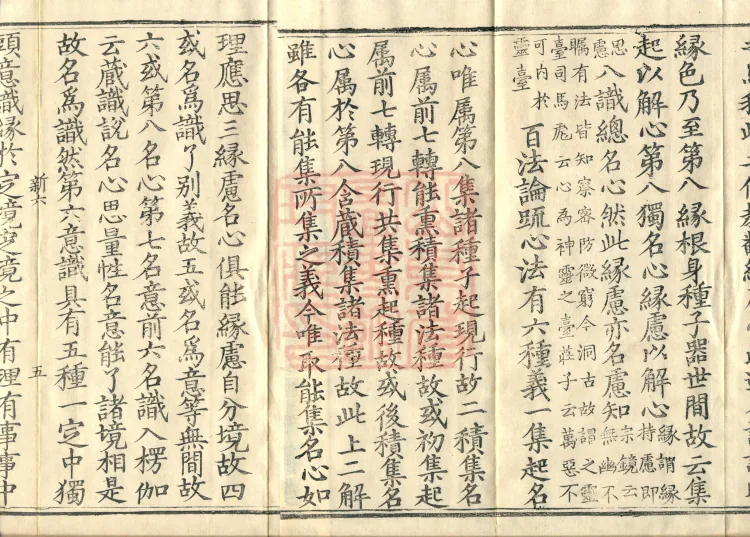 緣色乃至第八緣根身種子器世間故云集
起以解心第八獨名心緣慮以解心緣謂緣持慮即
慮思八識總名心然此緣慮亦名慮知宗鏡云無幽不
矚有法皆知察審防微窮今洞古故謂之靈
臺司馬彪云心為神靈之臺莊子云萬惡不
可内於
靈臺 百法論䟽心法有六種義一集起名
心唯属第八集諸種子起現行故二積集名
心属前七轉能熏積集諸法種故或初集起
属前七轉現行共集熏起種故或後積集名
心属於第八含藏積集諸法種故此上二解
雖各有能集所集之義今唯取能集名心如
理應思三緣慮名心俱能緣慮自分境故四
或名為識了别義故五或名為意等無間故
六或第八名心第七名意前六名識入楞伽
云藏識說名心思量性名意能了諸境相是
故名為識然第六意識具有五種一定中獨
新六 五
頭意識緣於定境定境之中有理有事事中